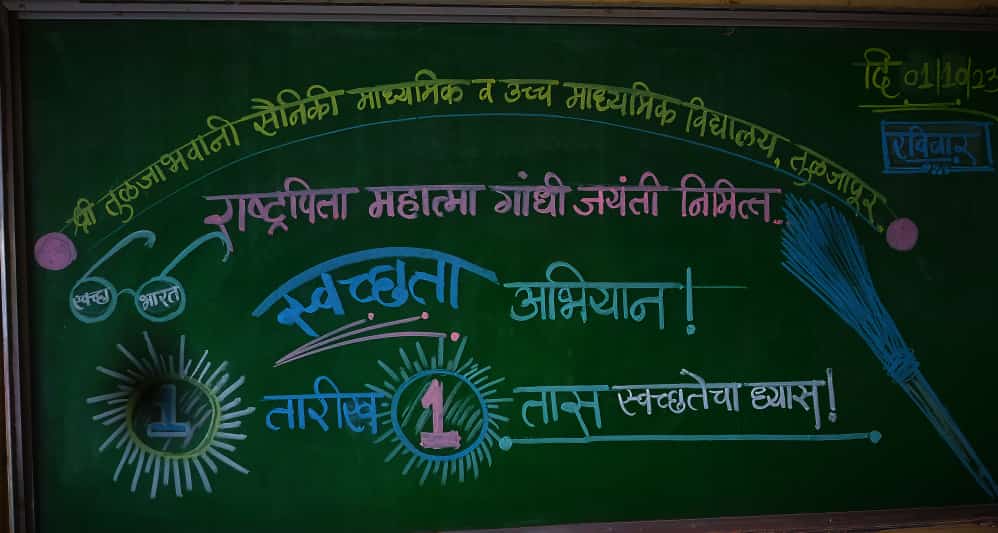 दि 01/10/23
रविवार
श्री तुळजाभवानी सैनिकी माध्यमिक व उच्च माध्यमिक विद्यालय, तुळजापूर.
राष्ट्रपिता महात्मा गांधी जयंती निमित्त..
स्वच्छ भारत
स्वच्छता अभियान!
1 तारीख 1 तास स्वच्छतेचा ध्यास!